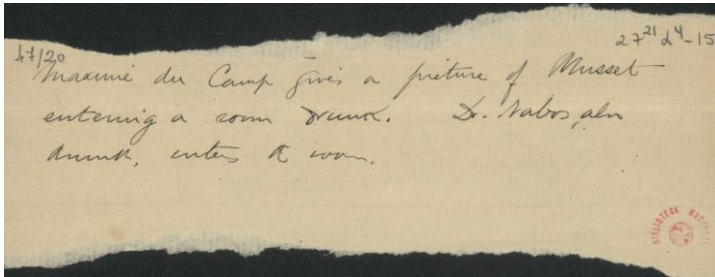 47/20
27²¹ L⁴-15
Maxime du Camp gives a picture of Musset
entering a room drunk. Dr. Nabos, also
drunk, enters a room.
BIBLIOTECA NACIONAL